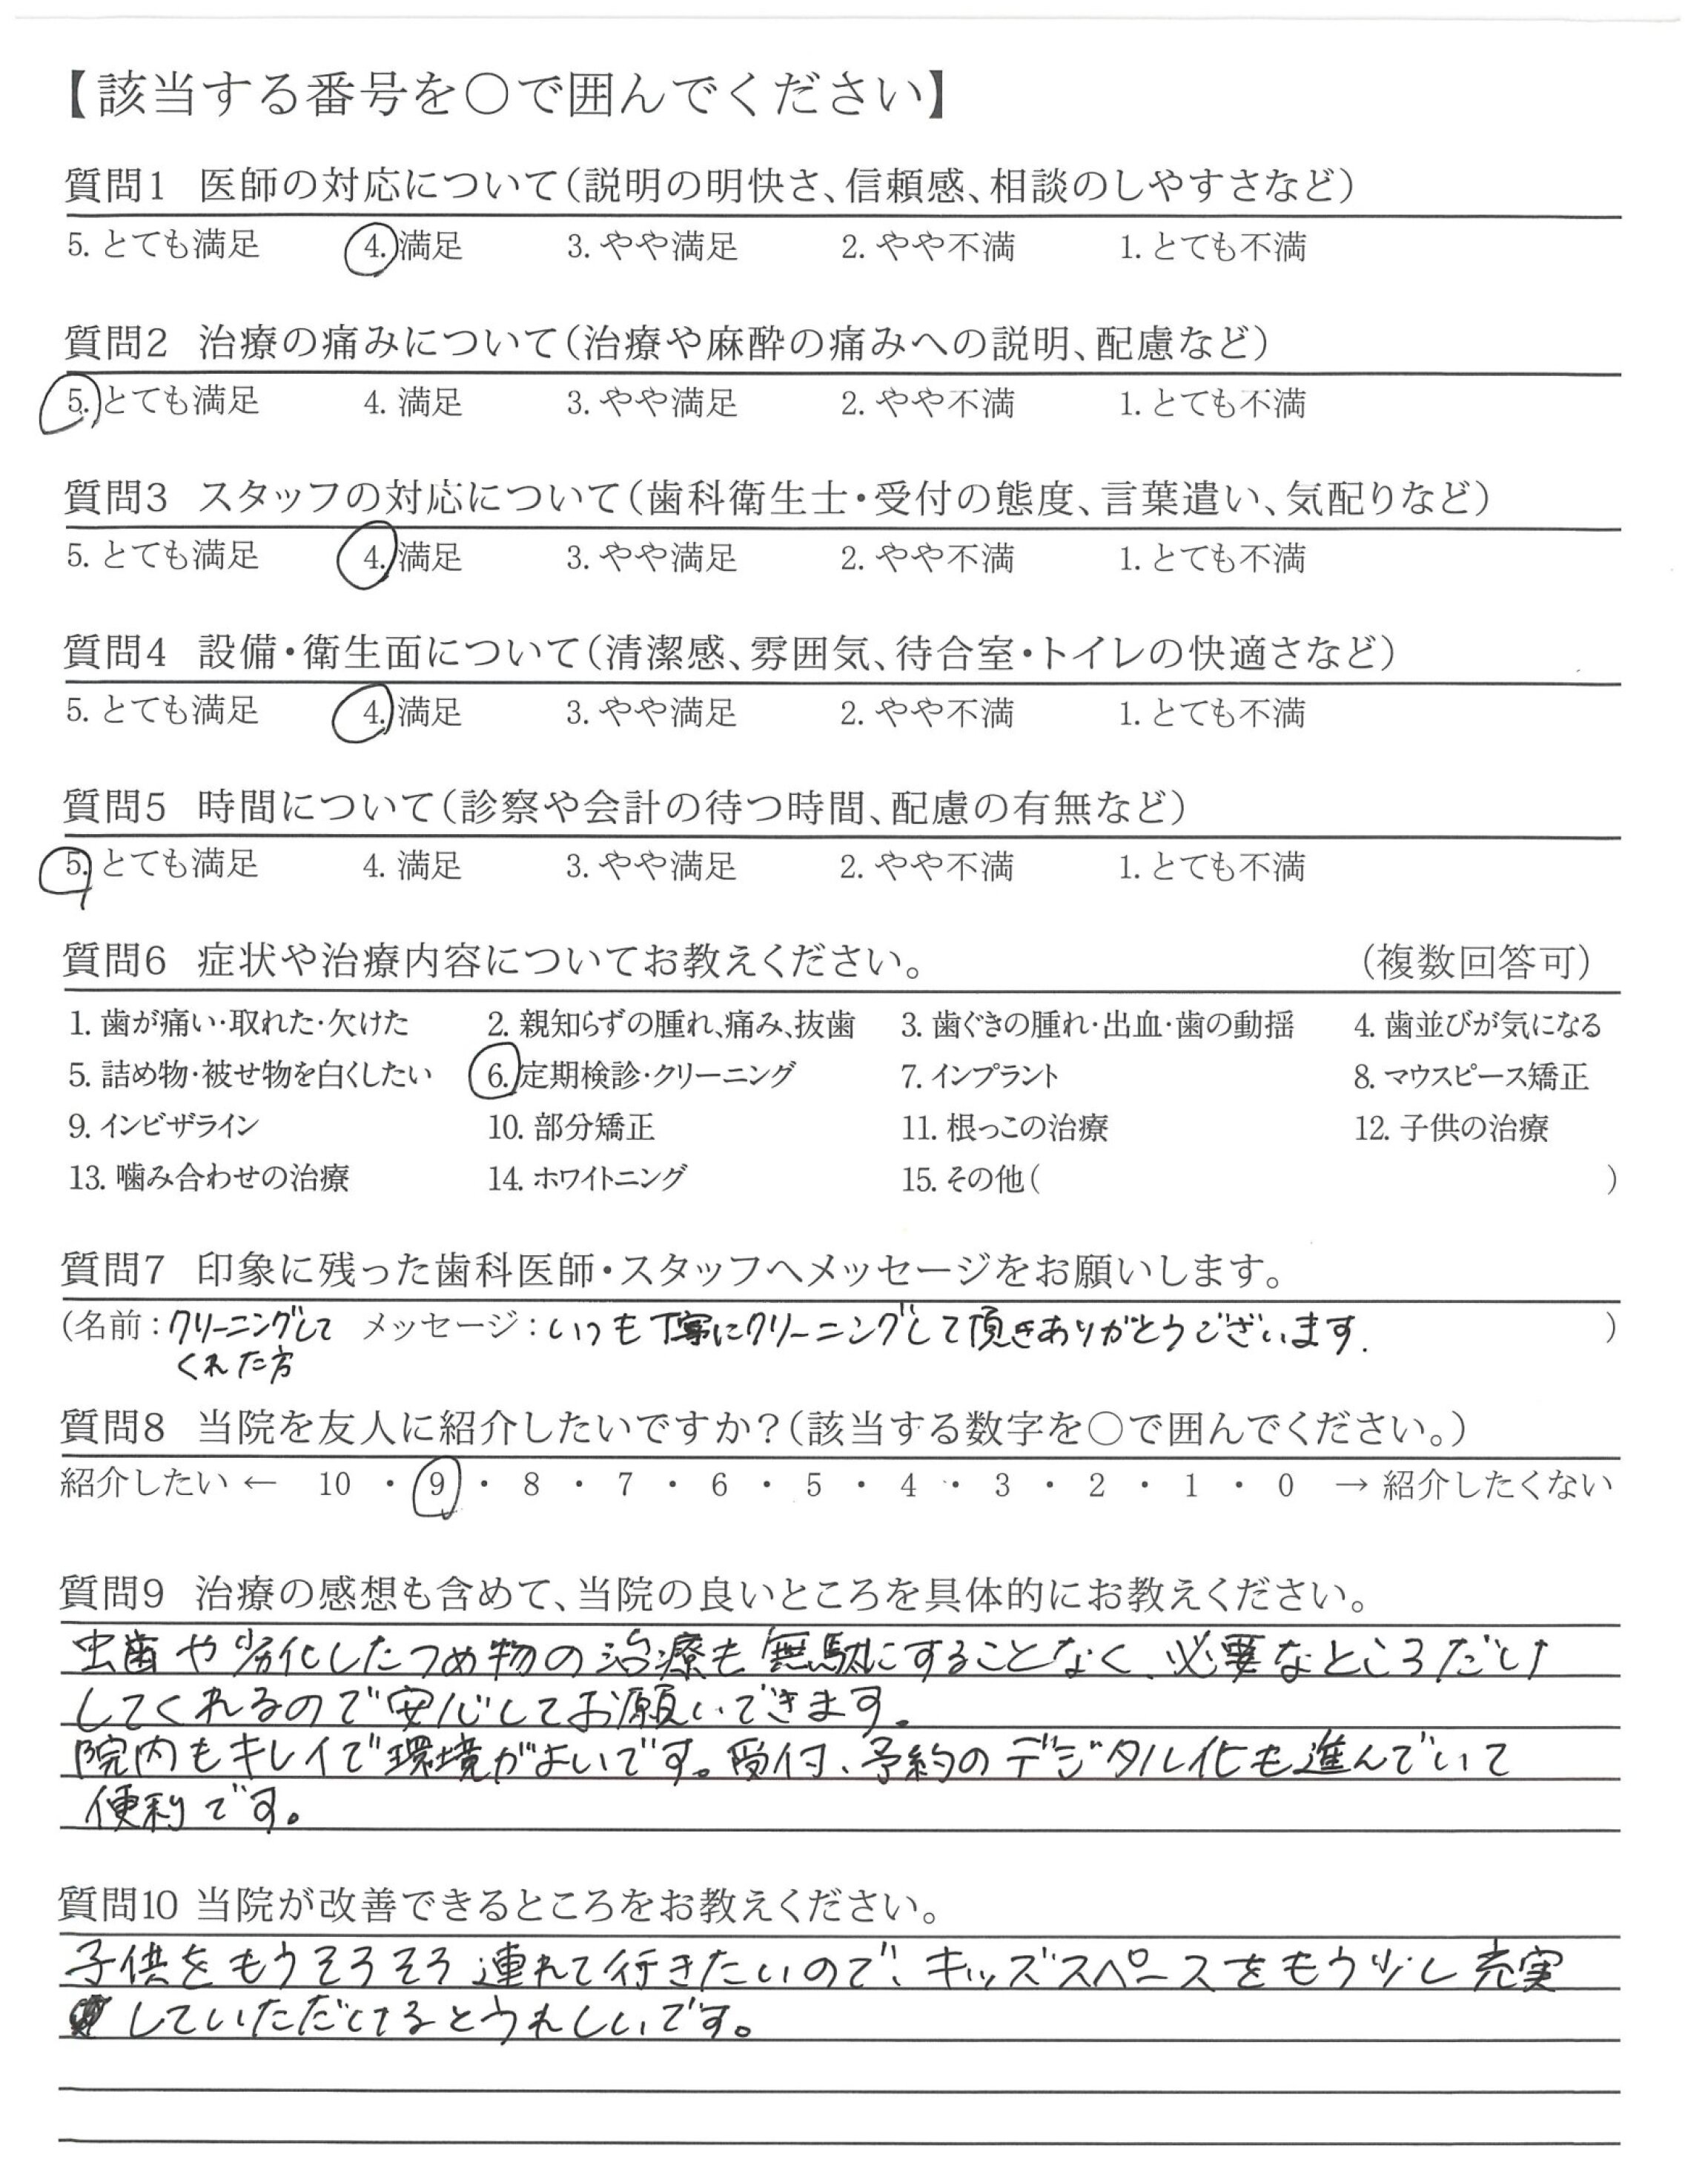 【該当する番号を○で囲んでください】
質問1 医師の対応について(説明の明快さ、信頼感、相談のしやすさなど)
5. とても満足 4. 満足 3. やや満足 2. やや不満 1. とても不満
質問2 治療の痛みについて(治療や麻酔の痛みへの説明、配慮など)
5. とても満足 4. 満足 3. やや満足 2. やや不満 1. とても不満
質問3 スタッフの対応について(歯科衛生士・受付の態度、言葉遣い、気配りなど)
5. とても満足 4. 満足 3. やや満足 2. やや不満 1. とても不満
質問4 設備・衛生面について(清潔感、雰囲気、待合室・トイレの快適さなど)
5. とても満足 4. 満足 3. やや満足 2. やや不満 1. とても不満
質問5 時間について(診察や会計の待つ時間、配慮の有無など)
5. とても満足 4. 満足 3. やや満足 2. やや不満 1. とても不満
質問6 症状や治療内容についてお教えください。 (複数回答可)
1. 歯が痛い・取れた・欠けた 2. 親知らずの腫れ、痛み、抜歯 3. 歯ぐきの腫れ・出血・歯の動揺 4. 歯並びが気になる
5. 詰め物・被せ物を白くしたい 6. 定期検診・クリーニング 7. インプラント 8. マウスピース矯正
9. インビザライン 10. 部分矯正 11. 根っこの治療 12. 子供の治療
13. 噛み合わせの治療 14. ホワイトニング 15. その他( )
質問7 印象に残った歯科医師・スタッフへメッセージをお願いします。
(名前:クリーニングして メッセージ:いつも丁寧にクリーニングして頂きありがとうございます. )
くれた方
質問8 当院を友人に紹介したいですか?(該当する数字を○で囲んでください。)
紹介したい ← 10 ・ 9 ・ 8 ・ 7 ・ 6 ・ 5 ・ 4 ・ 3 ・ 2 ・ 1 ・ 0 → 紹介したくない
質問9 治療の感想も含めて、当院の良いところを具体的にお教えください。
虫歯や劣化したつめ物の治療も無駄にすることなく、必要なところだけ
してくれるので安心してお願いできます。
院内もキレイで環境がよいです。受付、予約のデジタル化も進んでいて
便利です。
質問10 当院が改善できるところをお教えください。
子供をもうそろそろ連れて行きたいので、キッズスペースをもう少し充実
していただけるとうれしいです。